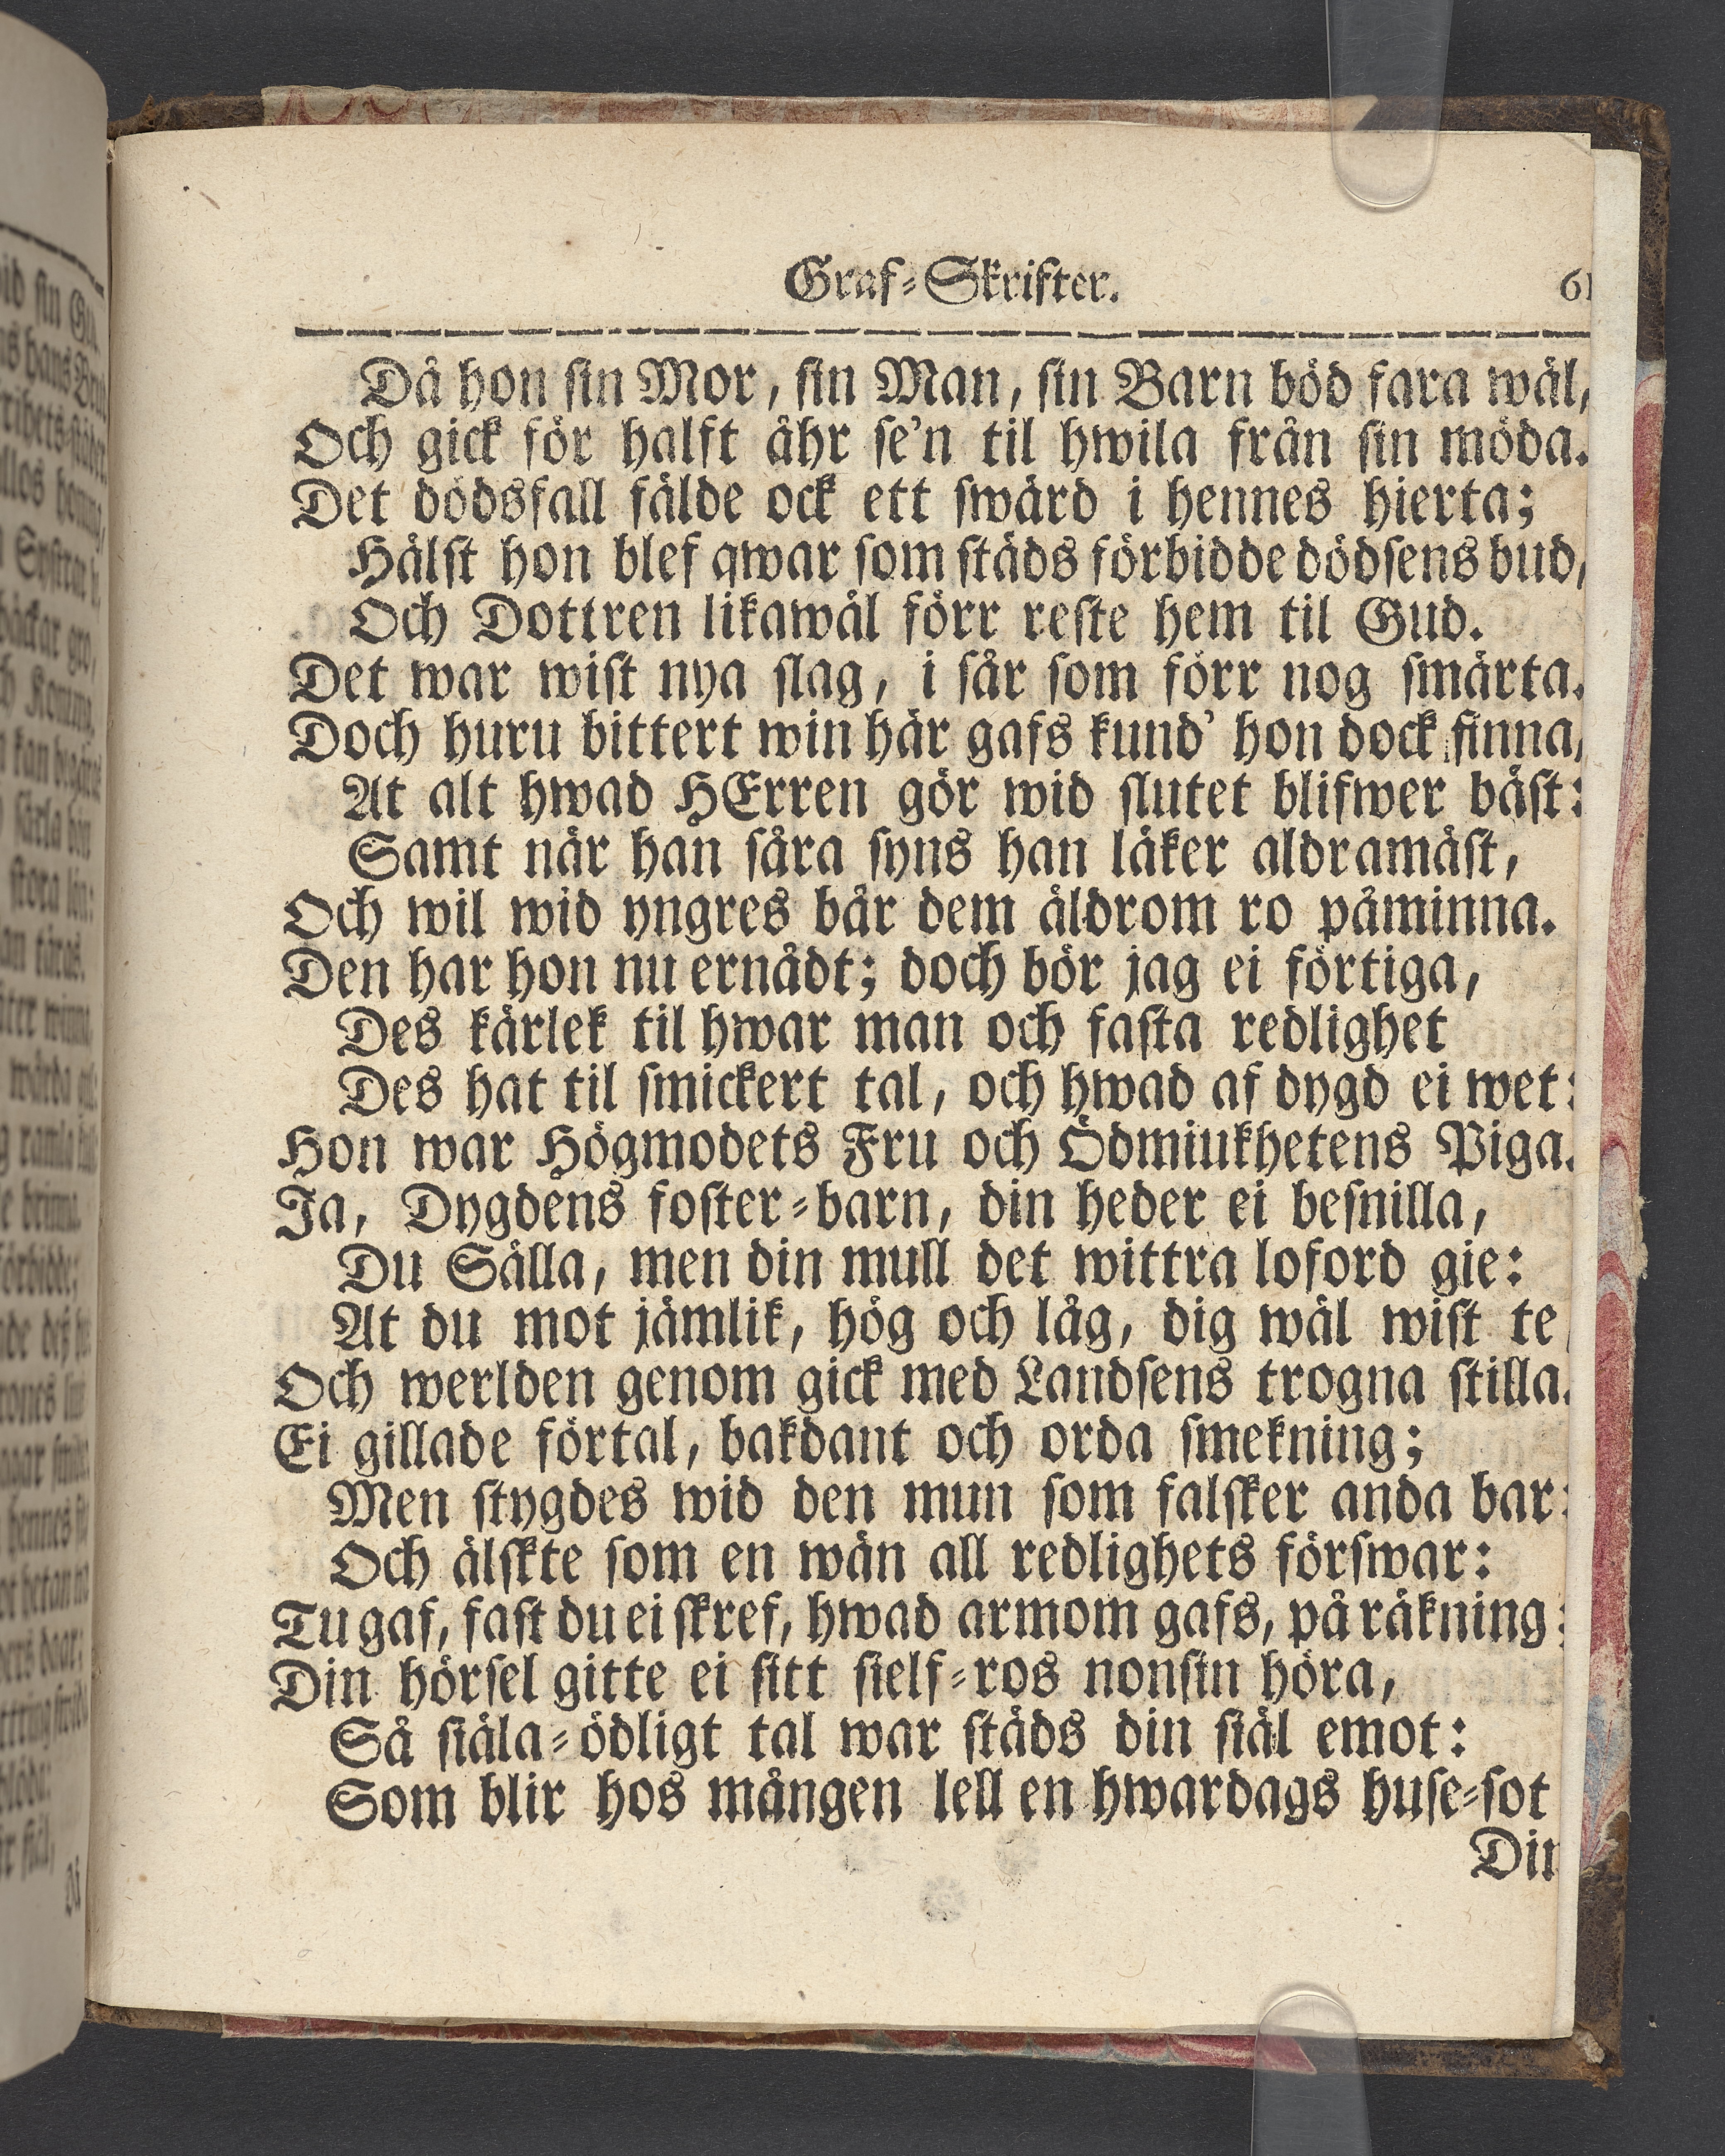 Graf-Skrifter. 61
Då hon sin Mor, sin Man, sin Barn böd fara wäl,
Och gick för halft åhr se'n til hwila från sin möda.
Det dödsfall fälde ock ett swärd i hennes hierta;
Hälst hon blef qwar som städs förbidde dödsens bud,
Och Dottren likawäl förr reste hem til Gud.
Det war wist nya slag, i sår som förr nog smärta.
Doch huru bittert win här gafs kund' hon dock finna,
At alt hwad HErren gör wid slutet blifwer bäst:
Samt når han såra syns han läker aldramäst,
Och wil wid yngres bår dem äldrom ro påminna.
Den har hon nu ernådt; doch bör jag ei förtiga,
Des kärlek til hwar man och fasta redlighet
Des hat til smickert tal, och hwad af dygd ei wet:
Hon war Högmodets Fru och Ödmiukhetens Piga.
Ja, Dygdens foster-barn, din heder ei besnilla,
Du Sälla, men din mull det wittra loford gie:
At du mot jämlik, hög och låg, dig wäl wist te,
Och werlden genom gick med Landsens trogna stilla.
Ei gillade förtal, bakdant och orda smekning;
Men stygdes wid den mun som falsker anda bar:
Och älskte som en wän all redlighets förswar:
Tu gaf, fast du ei skref, hwad armom gafs, på räkning:
Din hörsel gitte ei sitt sielf-ros nonsin höra,
Så siäla-ödligt tal war städs din siäl emot:
Som blir hos mången lell en hwardags huse-sot
Din